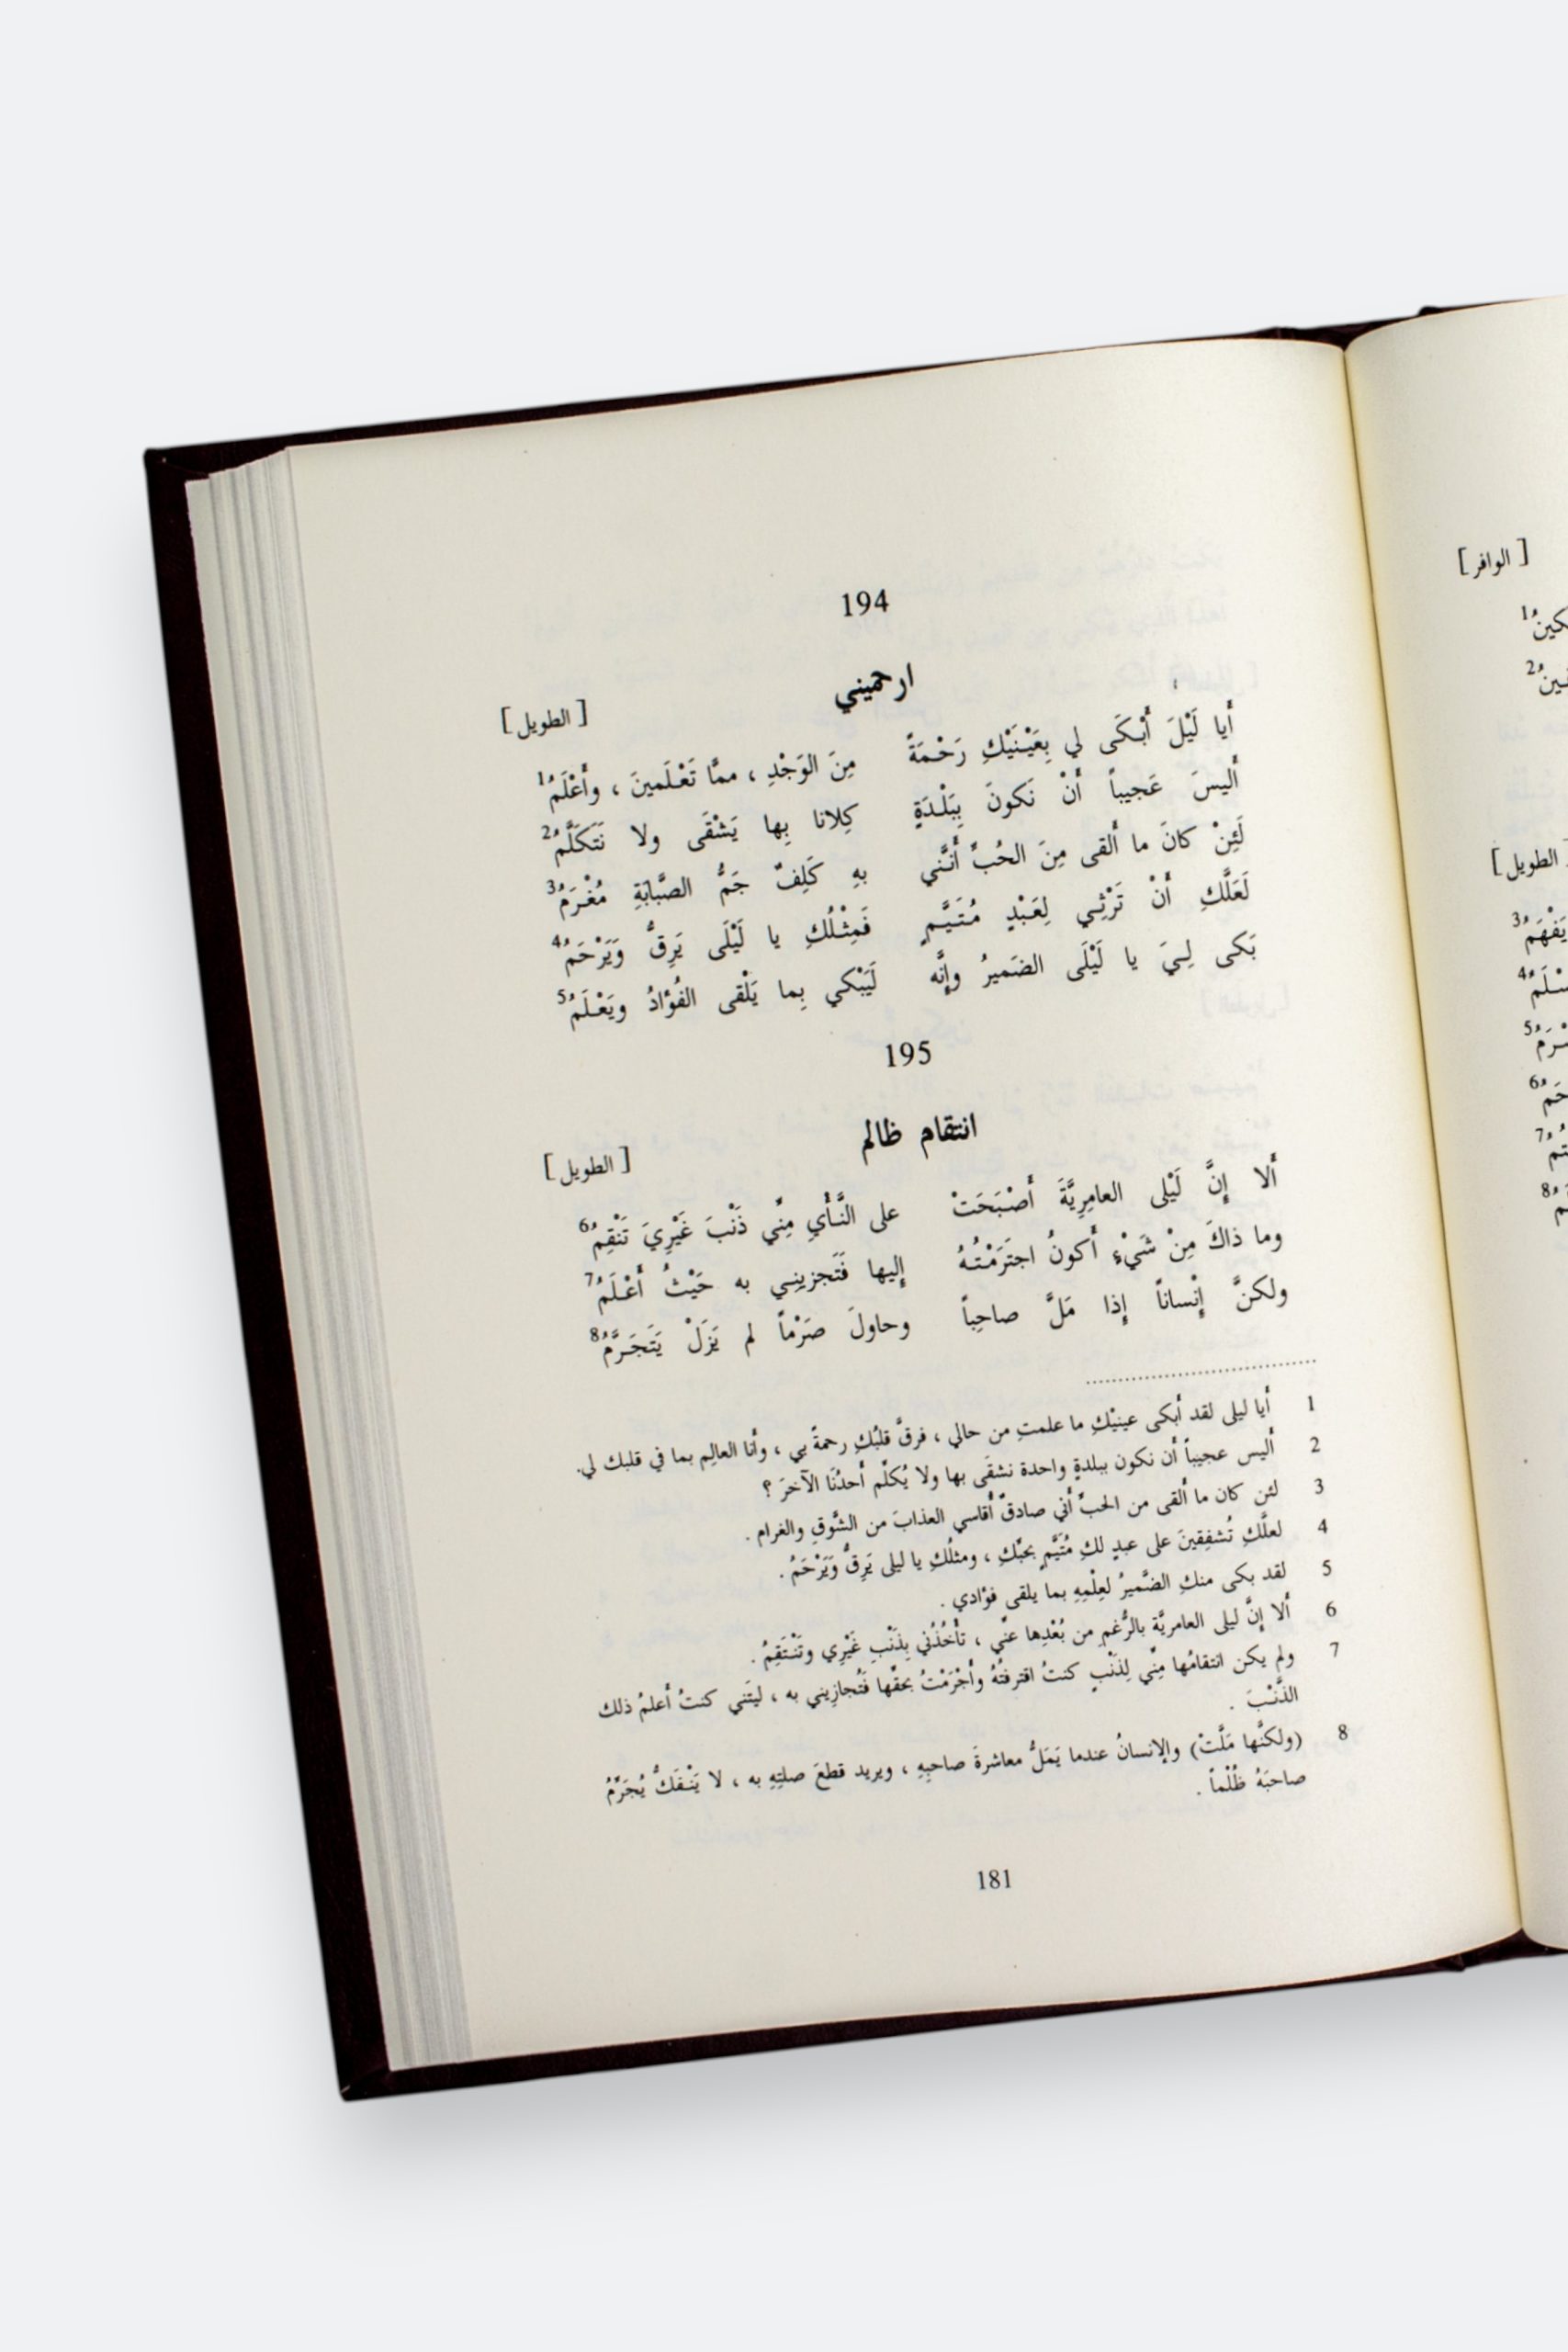 194
ارحميني
[ الطويل ]
أَيا لَيْلَ أَبْكَى لي بِعَيْنَيْكِ رَحْمَةً مِنَ الوَجْدِ ، ممَّا تَعْلَمينَ ، وأَعْلَمُ1
أَليسَ عَجيباً أَنْ نَكونَ بِبَلْدَةٍ كِلانا بِها يَشْقَى ولا نَتَكَلَّمُ2
لَئِنْ كانَ ما أَلقى مِنَ الحُبِّ أَنَّني بهِ كَلِفٌ جَمُّ الصَّبابَةِ مُغْرَمُ3
لَعَلَّكِ أَنْ تَرْثِي لِعَبْدٍ مُتَيَّمٍ فَمِثْلُكِ يا لَيْلَى يَرِقُّ وَيَرْحَمُ4
بَكى لِيَ يا لَيْلَى الضَميرُ وإِنَّه لَيَبْكي بِما يَلْقى الفُؤادُ ويَعْلَمُ5
195
انتقام ظالم
[ الطويل ]
أَلا إِنَّ لَيْلى العامِرِيَّةَ أَصْبَحَتْ على النَّأْيِ مِنِّي ذَنْبَ غَيْرِيَ تَنْقِمُ6
وما ذاكَ مِنْ شَيْءٍ أَكونُ اجتَرَمْتُهُ إِليها فَتَجزينِي به حَيْثُ أَعْلَمُ7
ولكنَّ إِنْساناً إِذا مَلَّ صاحِباً وحاولَ صَرْماً لم يَزَلْ يَتَجَرَّمُ8
1 أيا ليلى لقد أبكى عينيْكِ ما علمتِ من حالي ، فرقَّ قلبُكِ رحمةً بي ، وأنا العالِم بما في قلبك لي.
2 أليس عجيباً أن نكون ببلدةٍ واحدة نشقَى بها ولا يُكلِّم أحدُنَا الآخرَ ؟
3 لئن كان ما ألقى من الحبِّ أني صادقٌ أقاسي العذابَ من الشَّوقِ والغرام .
4 لعلَّكِ تُشفِقينَ على عبدٍ لكِ مُتَيَّمٍ بحبِّكِ ، ومثلُكِ يا ليلى يَرِقُّ وَيَرْحَمُ .
5 لقد بكى منكِ الضَّميرُ لعِلْمِهِ بما يلقى فؤادي .
6 ألا إنَّ ليلى العامريَّة بالرُّغمِ من بُعْدِها عنِّي ، تأخُذُني بِذَنْبِ غَيْرِي وتَنْتَقِمُ .
7 ولم يكن انتقامُها مِنِّي لِذَنْبٍ كنتُ اقترفتُهُ وأجْرَمْتُ بحقِّها فَتُجازِيني به ، ليتَني كنتُ أعلمُ ذلك
الذَّنْبَ .
8 (ولكنَّها مَلَّتْ) والإنسانُ عندما يَمَلُّ معاشرةَ صاحبِهِ ، ويريد قطعَ صلتِهِ به ، لا يَنْفَكُّ يُجَرِّمُ
صاحبَهُ ظُلْماً .
181
[ الوافر ]
الطويل ]
يَفْهَمُ3